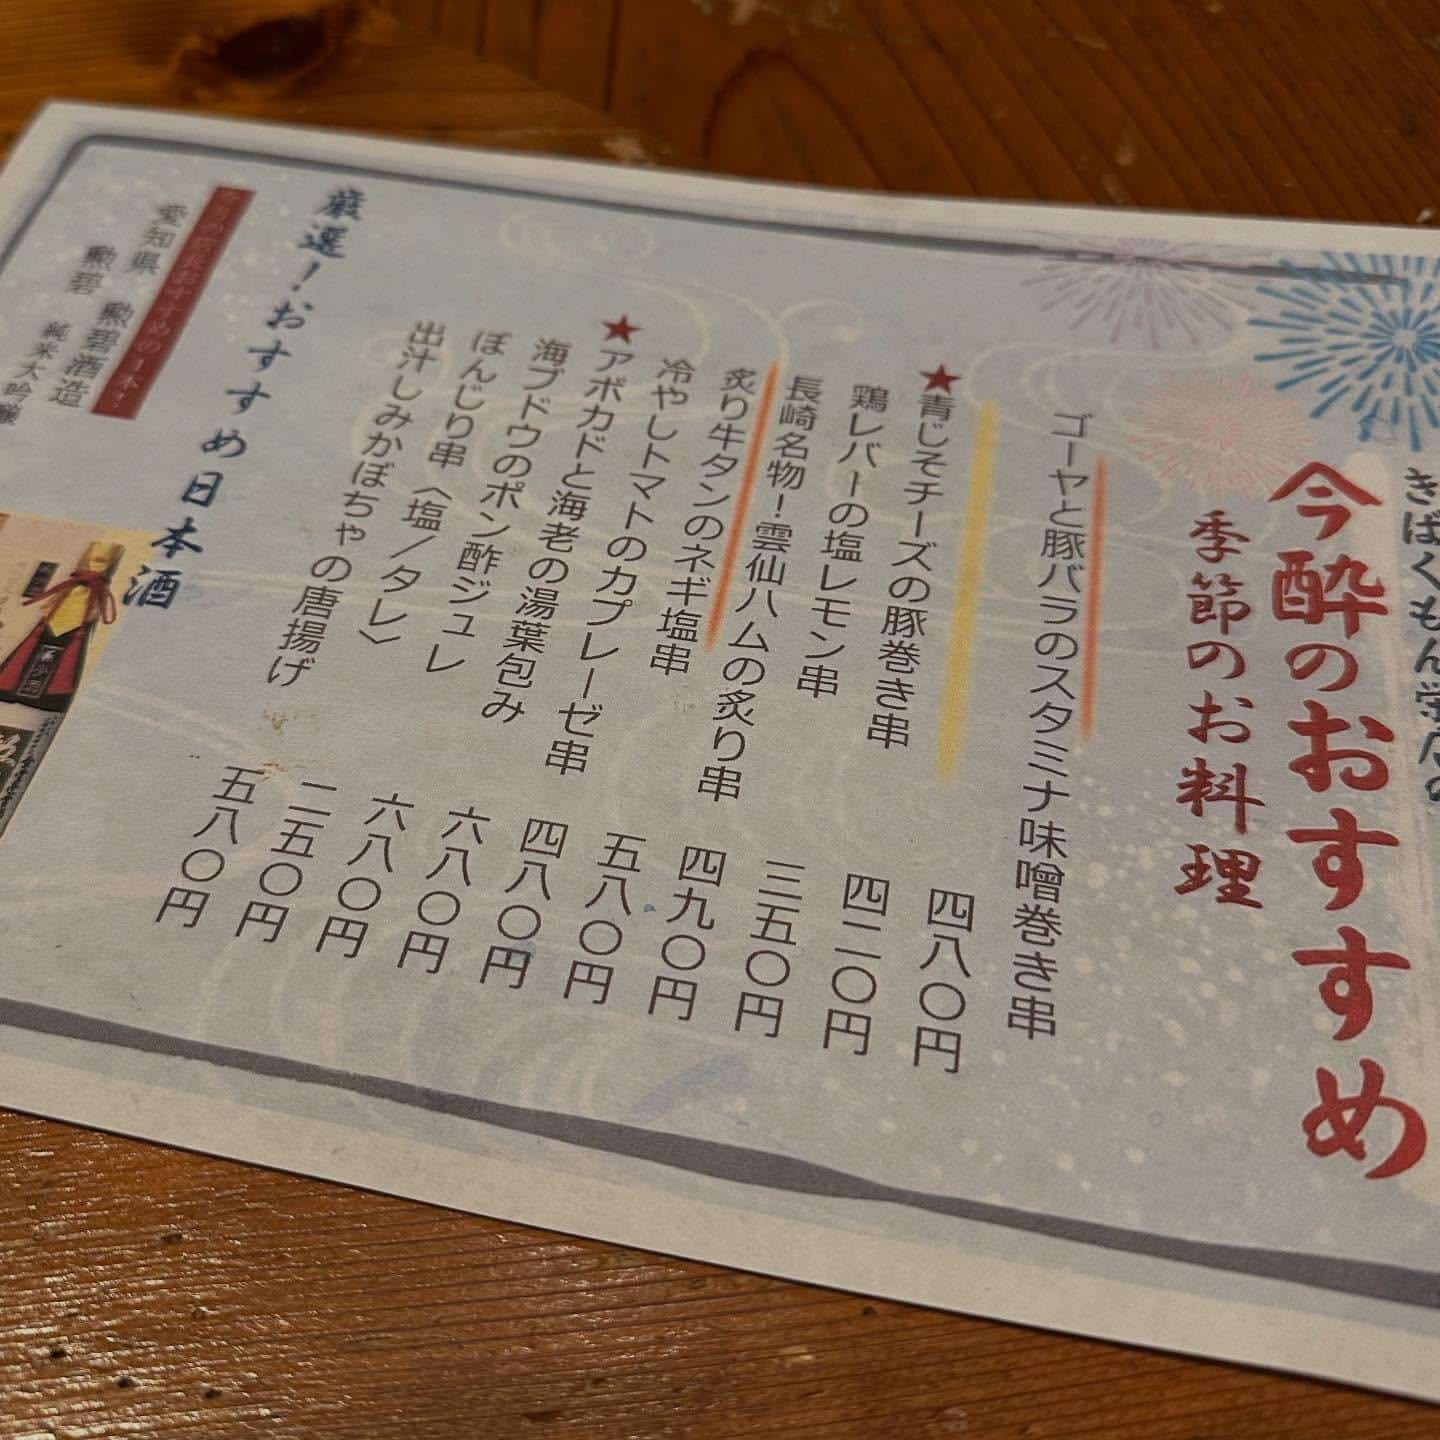 きばくもん栄店の
今酔のおすすめ
季節のお料理
ゴーヤと豚バラのスタミナ味噌巻き串 四八〇円
★青じそチーズの豚巻き串 四二〇円
鶏レバーの塩レモン串 三五〇円
長崎名物!雲仙ハムの炙り串 四九〇円
炙り牛タンのネギ塩串 五八〇円
冷やしトマトのカプレーゼ串 四八〇円
★アボカドと海老の湯葉包み 六八〇円
海ブドウのポン酢ジュレ 六八〇円
ぼんじり串〈塩/タレ〉 二五〇円
出汁しみかぼちゃの唐揚げ 五八〇円
厳選!おすすめ日本酒
おすすめの1本!!
愛知県 勲碧酒造
勲碧 純米大吟醸